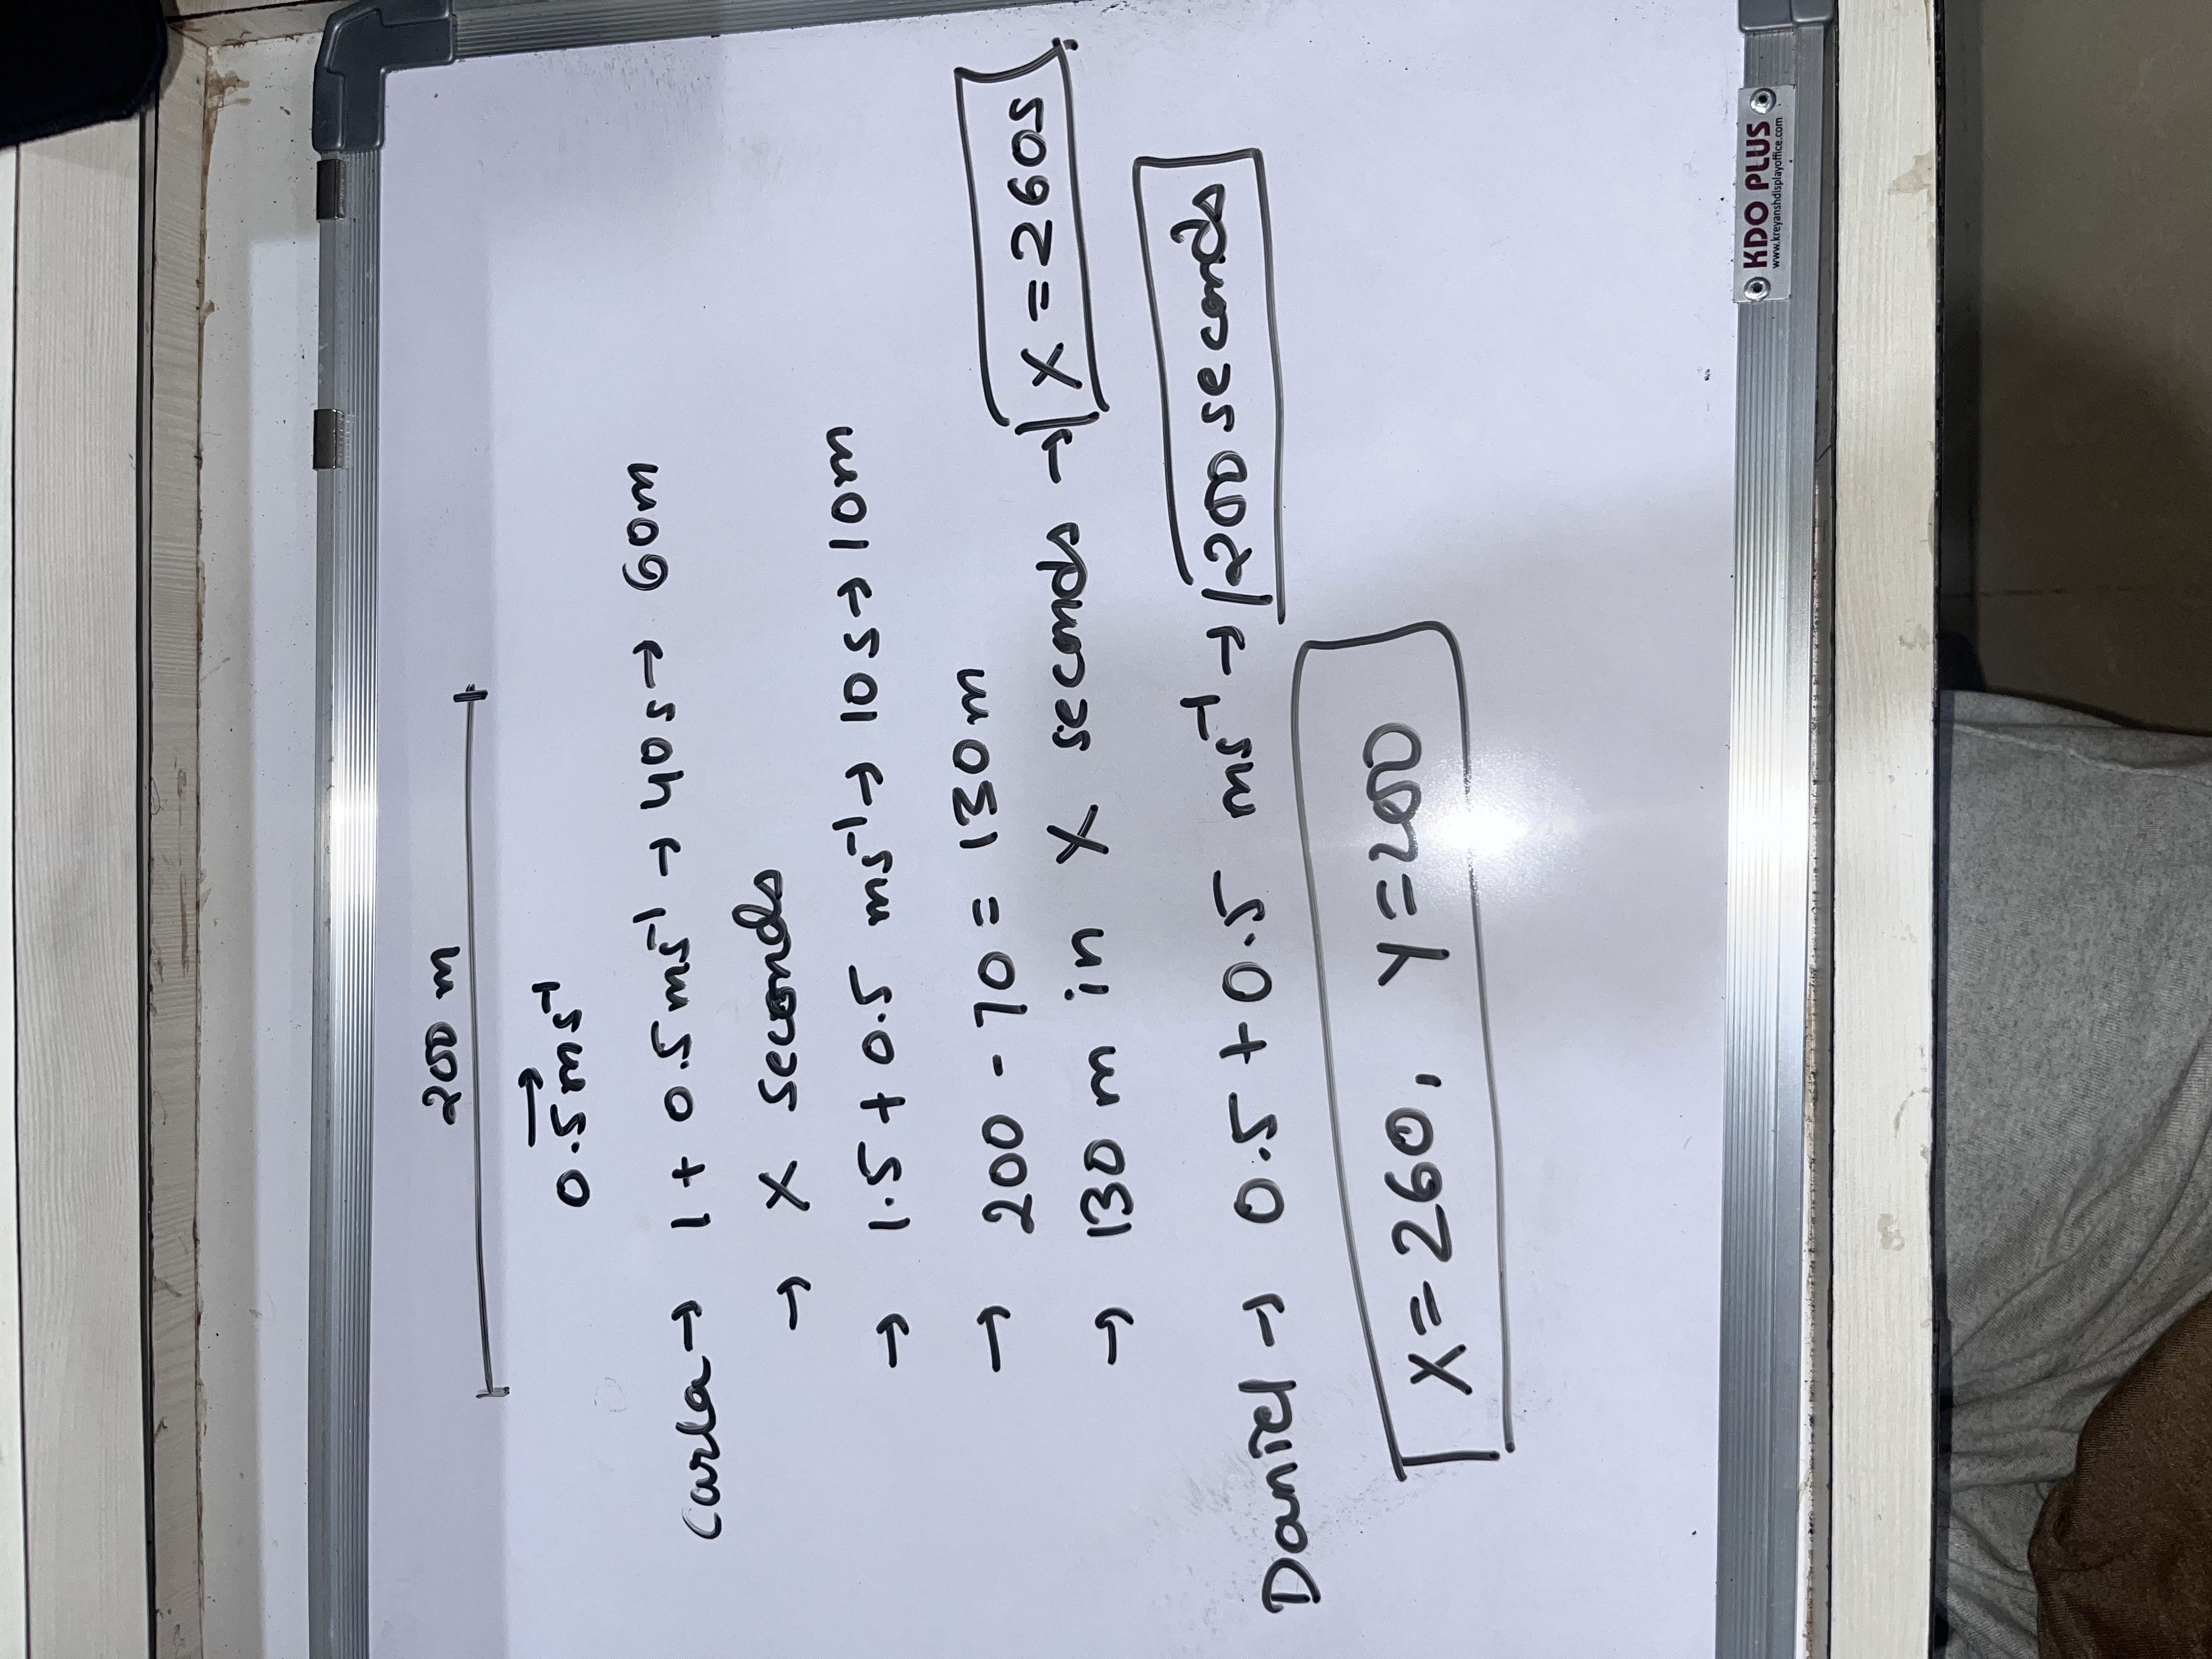 200 m
0.5 ms⁻¹
Carla → 1 + 0.5 ms⁻¹ → 40s → 60m
→ X seconds
→ 1.5 + 0.5 ms⁻¹ → 10s → 10m
→ 200 - 70 = 130m
→ 130 m in X seconds → X = 260s
Daniel → 0.5 + 0.5 ms⁻¹ → 200 seconds
X = 260, Y = 200
KDO PLUS
www.kreyanshdisplayoffice.com